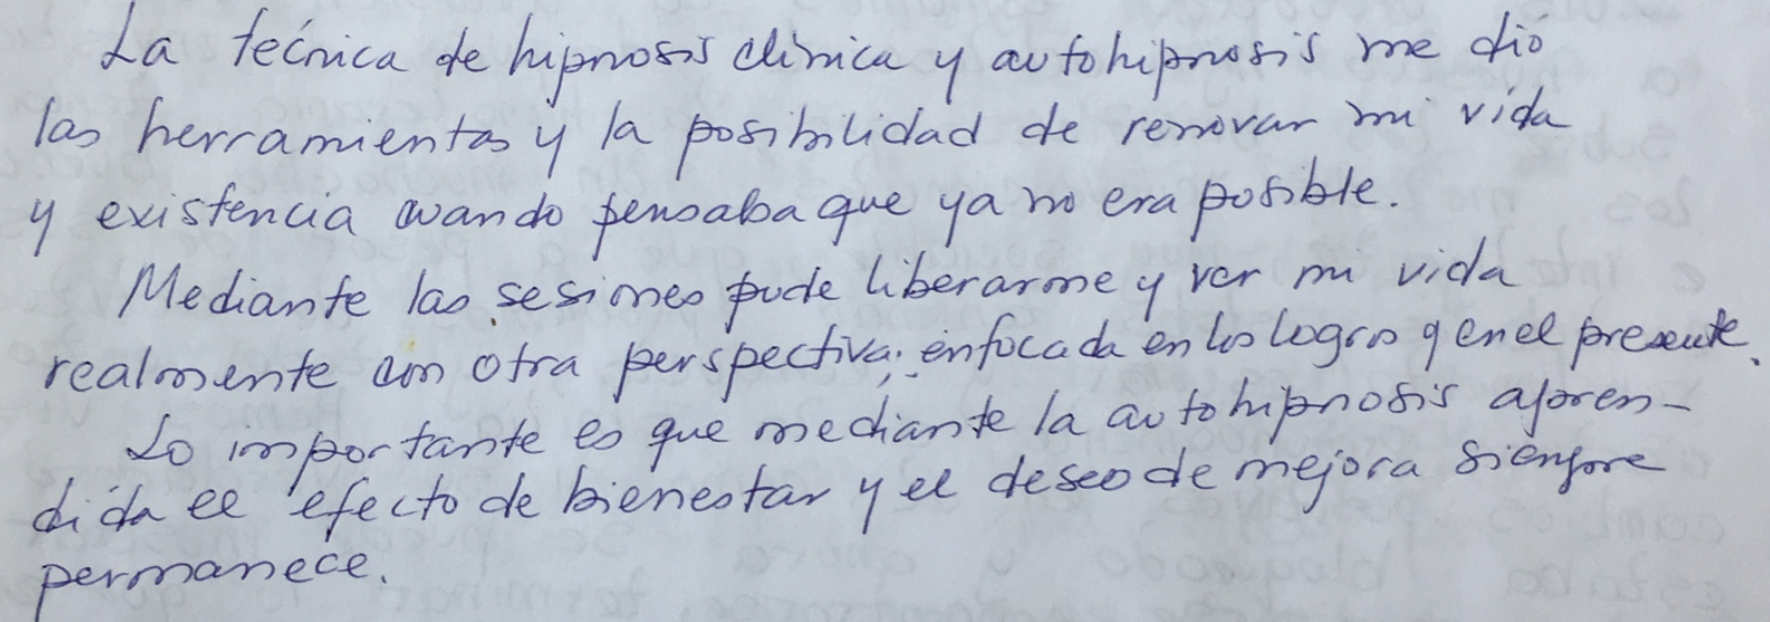 La técnica de hipnosis clínica y autohipnosis me dió
las herramientas y la posibilidad de renovar mi vida
y existencia cuando pensaba que ya no era posible.
Mediante las sesiones pude liberarme y ver mi vida
realmente con otra perspectiva; enfocada en los logros y en el presente.
Lo importante es que mediante la autohipnosis apren-
dida el efecto de bienestar y el deseo de mejora siempre
permanece.